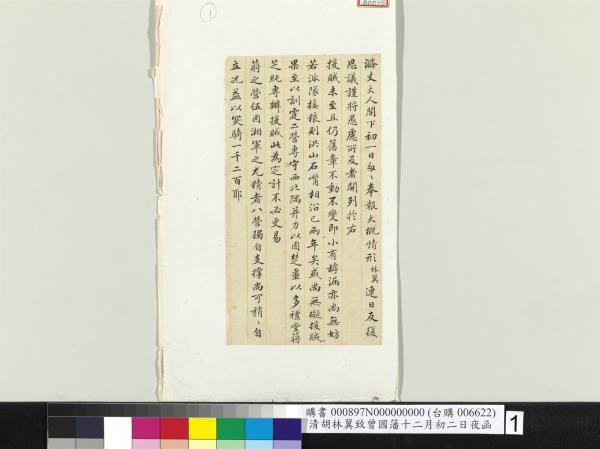 滌丈大人閣下初一日匆匆奉報大概情形林翼連日反復
思議謹將愚慮所及者開列於右
援賊未至且仍舊章不動不變即小有罅漏亦尚無妨
若派隊接糧則洪山石嘴相沿已兩年矣或尚無礙援賊
果至以訓霆二營專守西北隅并力以固楚壘以多禮堂蔣
芝純專辦援賊此為定計不必更易
蔣之營伍固湘軍之尤精者八營獨自支撐尚可稍稍自
立況益以突騎一千二百耶
1
購書 000897N000000000 (台購 006622)
清胡林翼致曾國藩十二月初二日夜函
1